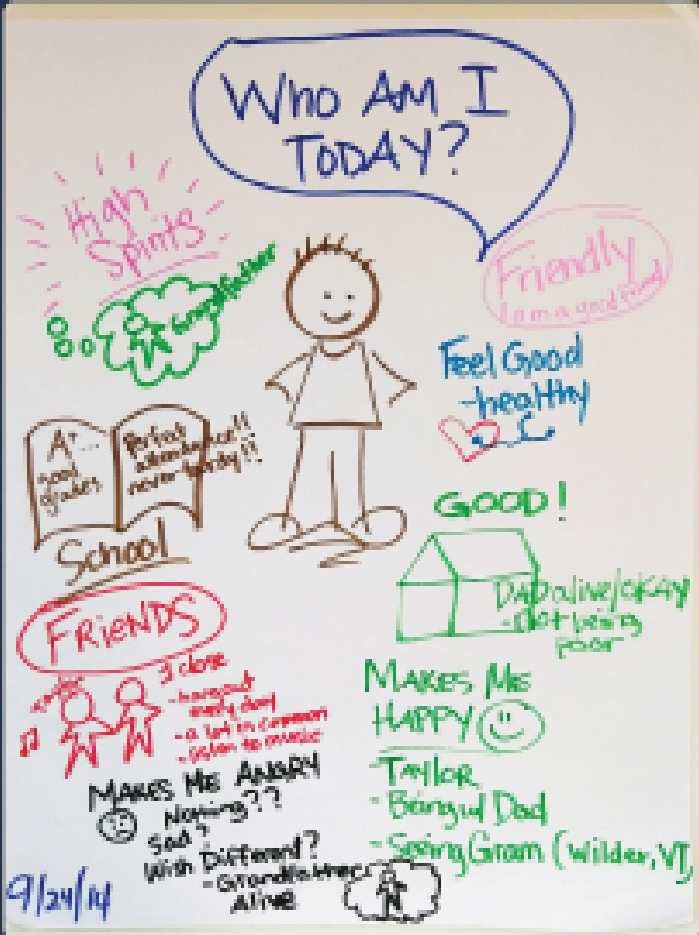 WHO AM I
TODAY?
High
Spirits
Grandfather
Friendly
I am a good friend
Feel Good
-healthy
A+...
good
grades
Perfect
attendance!!
never tardy!!
School
GOOD!
DAD alive/OKAY
- Not being
poor
FRIENDS
3 close
- hangout
every day
- a lot in common
- listen to music
MAKES ME
HAPPY
- TAYLOR
- Being w/ Dad
- Seeing Gram (Wilder, VT)
MAKES ME ANGRY
Nothing??
Sad?
Wish Different?
- Grandfather
alive
9/24/14